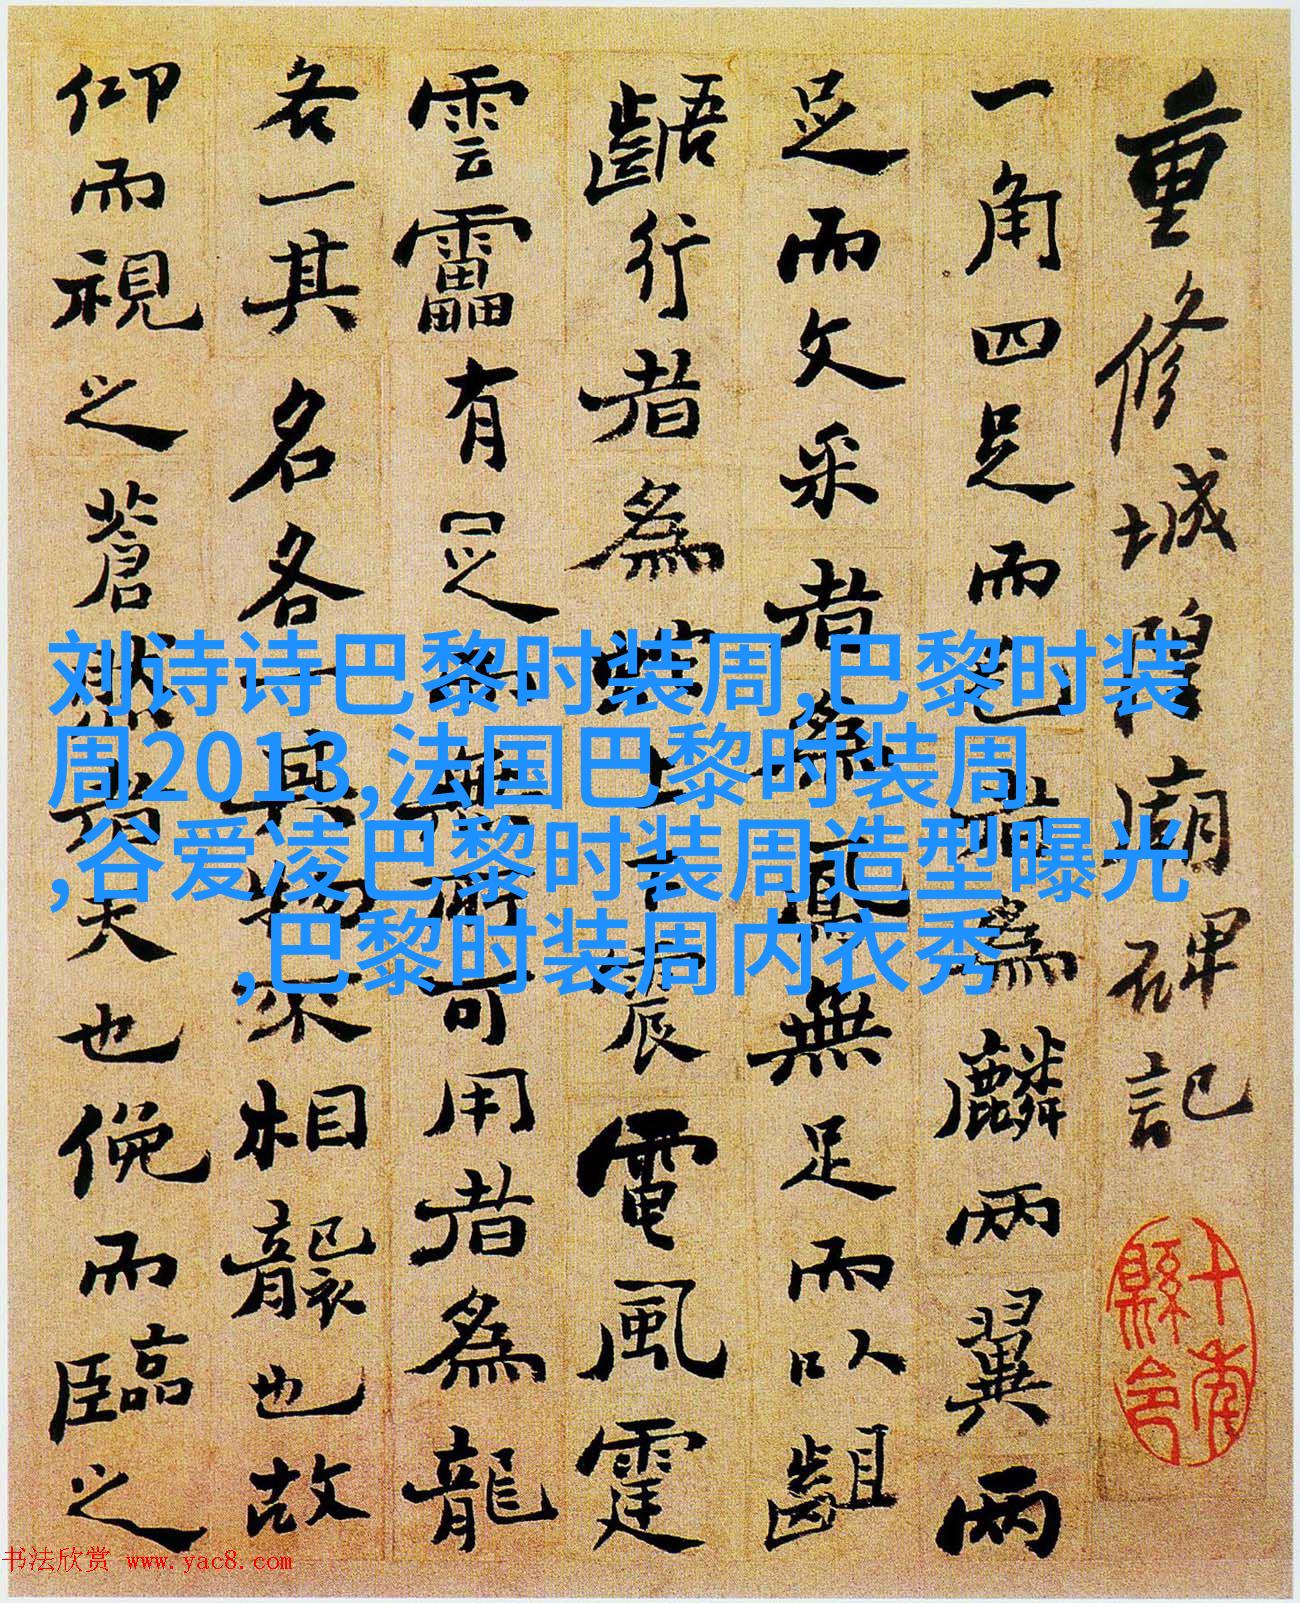 刘诗诗巴黎时装周,巴黎时装
周2013,法国巴黎时装周
,谷爱凌巴黎时装周造型曝光
,巴黎时装周内衣秀
重修城隍廟碑記
一角四足而為麟兩翼兩
足而文采者為鳳無足而以齟
齬行者為蛇上下震電風霆
雲靁有之無所可用者為龍
各一其名各一其物來相襲也故
仰而視之蒼然者天也俛而臨之
书法欣赏 www.yac8.com